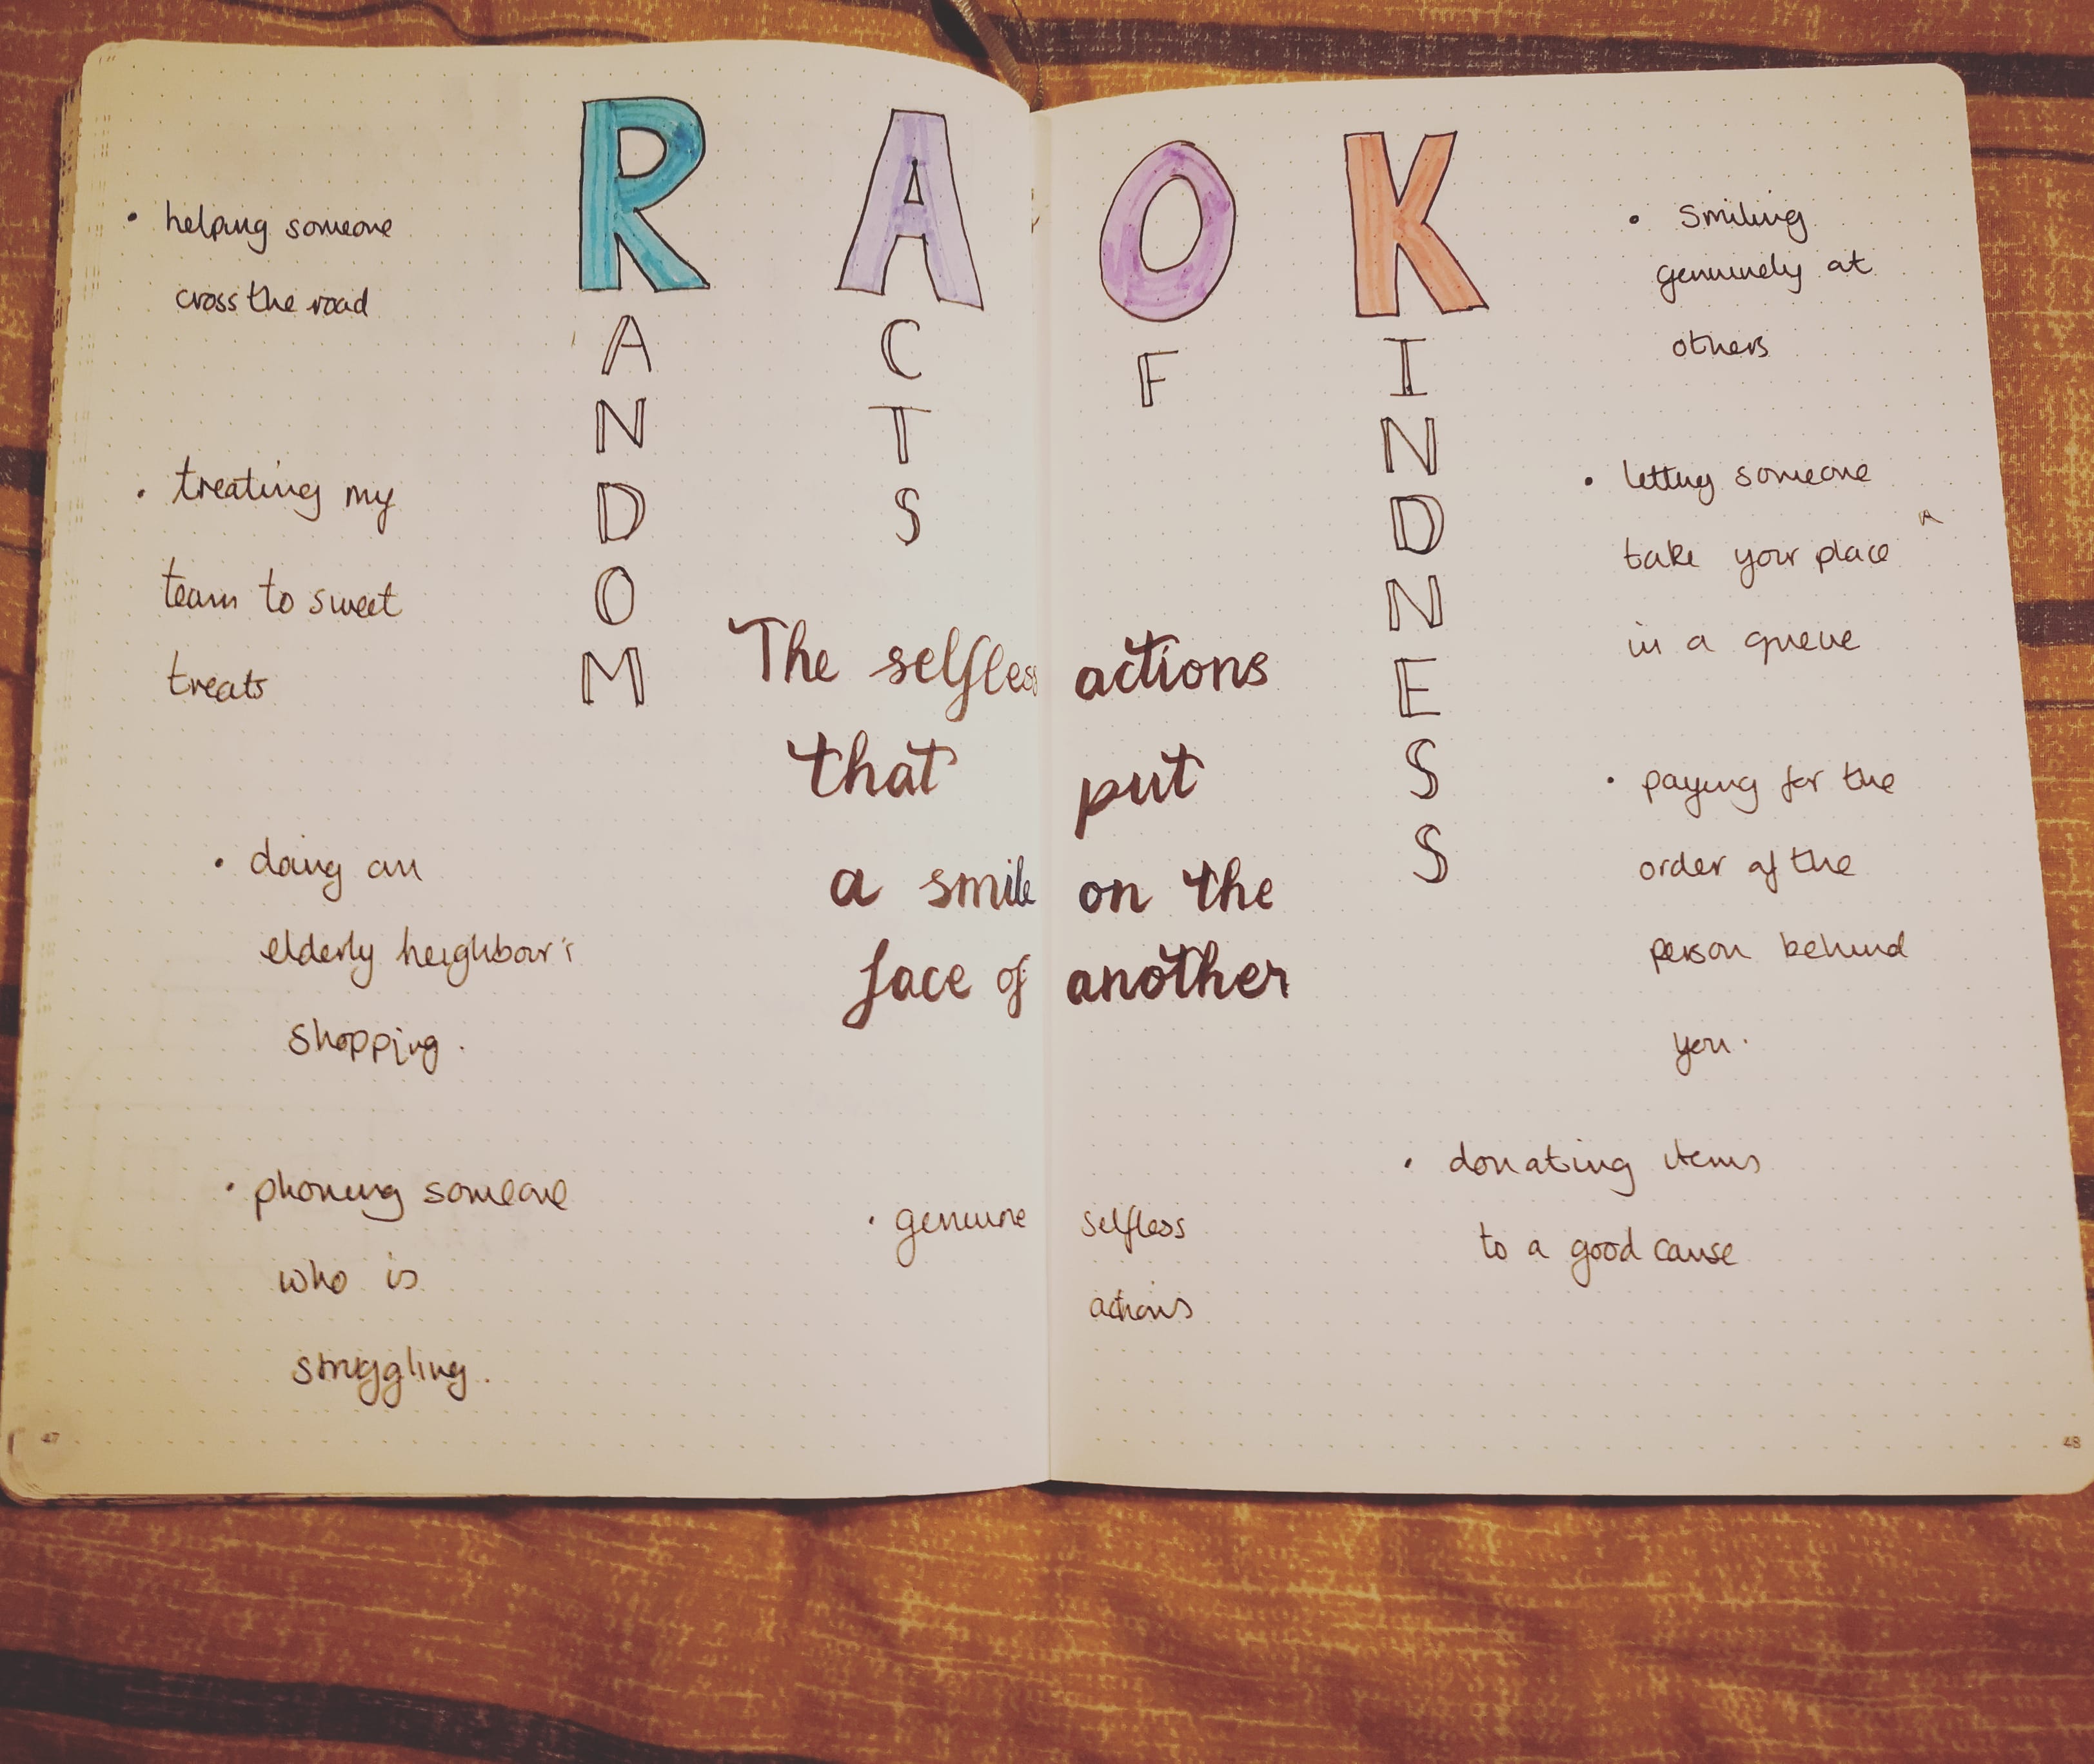 RANDOM
ACTS
OF
KINDNESS
The selfless actions
that put
a smile on the
face of another
• helping someone
cross the road
• treating my
team to sweet
treats
• doing an
elderly neighbour's
shopping.
• phoning someone
who is
struggling.
• genuine selfless
actions
• smiling
genuinely at
others
• letting someone
take your place
in a queue
• paying for the
order of the
person behind
you.
• donating items
to a good cause
47
48